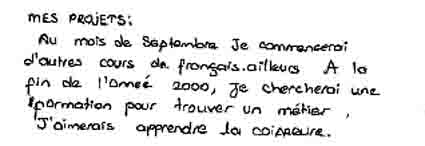 MES PROJETS:
Au mois de Septembre Je commencerai
d'autres cours de français.ailleurs A la
fin de l'anneé 2000, Je chercherai une
formation pour trouver un métier,
J'aimerais apprendre la coiffeure.